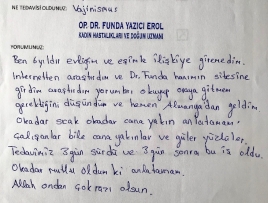 NE TEDAVİSİ OLDUNUZ: Vajinismus
OP. DR. FUNDA YAZICI EROL
KADIN HASTALIKLARI VE DOĞUM UZMANI
YORUMUNUZ:
Ben 9 yıldır evliyim ve eşimle ilişkiye giremedim.
İnternetten araştırdım ve Dr. Funda hanımın sitesine
girdim araştırdım yorumları okuyup oraya gitmem
gerektiğini düşündüm ve hemen Almanya'dan geldim
Okadar sıcak okadar cana yakın anlatamam.
Çalışanlar bile cana yakınlar ve güler yüzlüler.
Tedavimiz 3 gün sürdü ve 3 gün sonra bu iş oldu.
Okadar mutlu oldum ki anlatamam.
Allah ondan çok razı olsun.